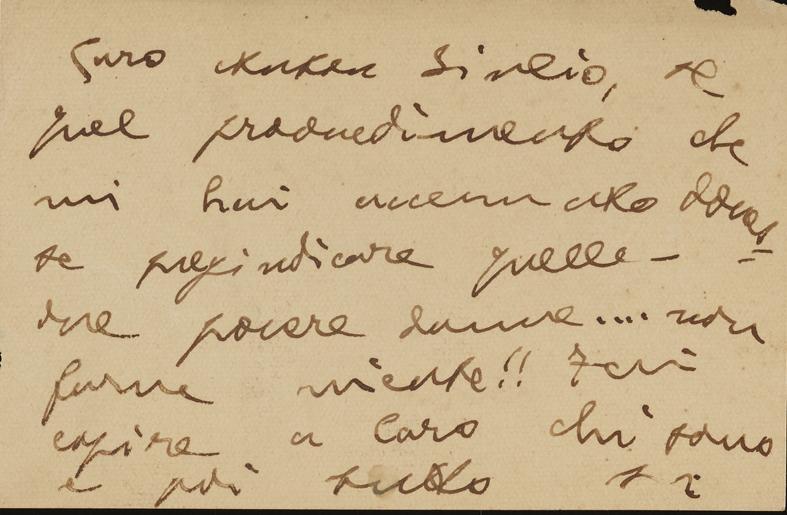 Caro Silvio, se
quel provvedimento che
mi hai accennato doves
se pregiudicare quelle
due povere donne.... non
farne niente!! Fai
capire a loro chi sono
e poi tutto si